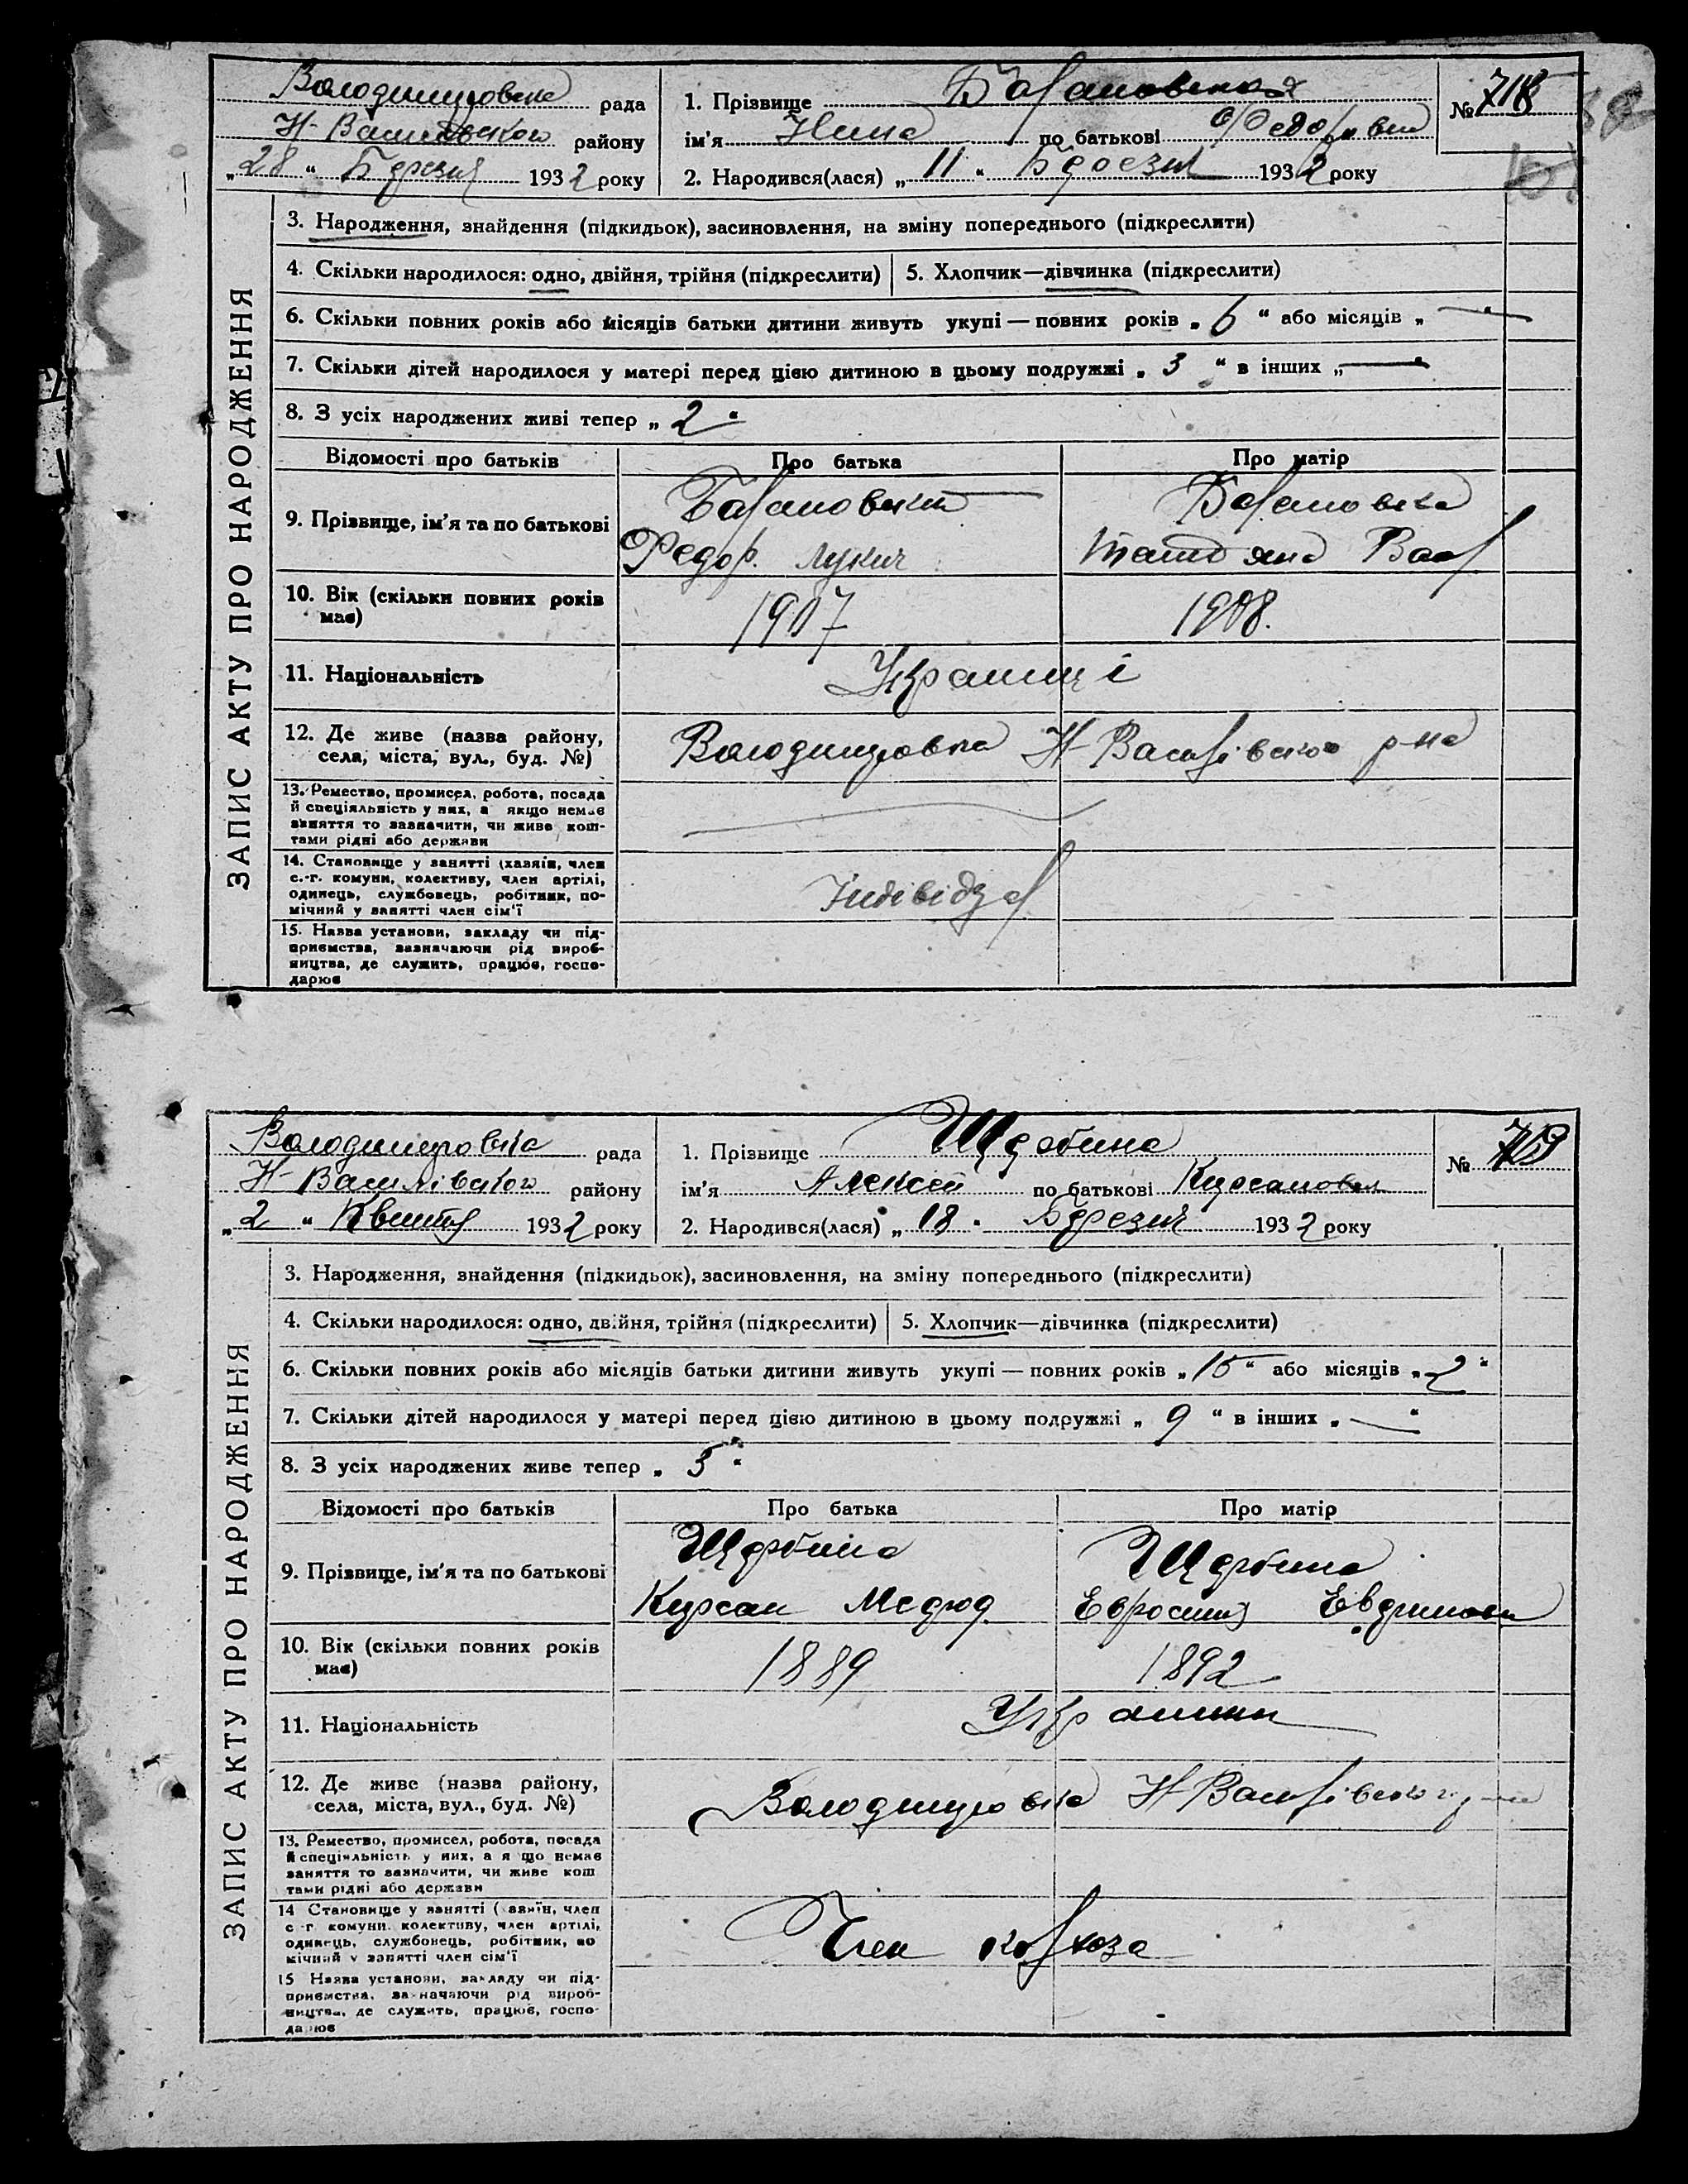 Володимировська рада
Н-Василівського району
„28“ Березня 1932 року
1. Прізвище Барановская
ім'я Нина по батькові Федоровна
2. Народився(лася) „11“ Березня 1932 року
№ 718
ЗАПИС АКТУ ПРО НАРОДЖЕННЯ
3. Народження, знайдення (підкидьок), засиновлення, на зміну попереднього (підкреслити)
4. Скільки народилося: одно, двійня, трійня (підкреслити) 5. Хлопчик—дівчинка (підкреслити)
6. Скільки повних років або місяців батьки дитини живуть укупі — повних років „6“ або місяців „—“
7. Скільки дітей народилося у матері перед цією дитиною в цьому подружжі „3“ в інших „—“
8. З усіх народжених живі тепер „2“
Відомості про батьків Про батька Про матір
9. Прізвище, ім'я та по батькові
Барановский Барановска
Федор. Лукич Татьяна Вас
10. Вік (скільки повних років має)
1907 1908.
11. Національність Украинці
12. Де живе (назва району, села, міста, вул., буд. №)
Володимировка Н-Василівского р-на
13. Ремество, промисел, робота, посада
й спеціяльність у них, а якщо немає
заняття то зазначити, чи живе кош-
тами рідні або держави
14. Становище у занятті (хазяїн, член
с.-г. комуни, колективу, член артілі,
одинець, службовець, робітник, по-
мічний у занятті член сім'ї
Індівідуал
15. Назва установи, закладу чи під-
приємства, зазначаючи рід вироб-
ництва, де служить, працює, госпо-
дарює
Володимировка рада
Н-Василівского району
„2“ Квитня 1932 року
1. Прізвище Щербина
ім'я Алексей по батькові Кирсанович
2. Народився(лася) „18“ Березня 1932 року
№
ЗАПИС АКТУ ПРО НАРОДЖЕННЯ
3. Народження, знайдення (підкидьок), засиновлення, на зміну попереднього (підкреслити)
4. Скільки народилося: одно, двійня, трійня (підкреслити) 5. Хлопчик—дівчинка (підкреслити)
6. Скільки повних років або місяців батьки дитини живуть укупі — повних років „15“ або місяців „2“
7. Скільки дітей народилося у матері перед цією дитиною в цьому подружжі „9“ в інших „—“
8. З усіх народжених живе тепер „5“
Відомості про батьків Про батька Про матір
9. Прізвище, ім'я та по батькові
Щербина Щербина
Кирсан Евросиния
10. Вік (скільки повних років має)
1889 1892
11. Національність Украинци
12. Де живе (назва району, села, міста, вул., буд. №)
Володимировка Н-Василівского р-на
13. Ремество, промисел, робота, посада
й спеціяльність у них, а я що немає
заняття то зазначити, чи живе кош
тами рідні або держави
14 Становище у занятті (хазяїн, член
с-г комуни. колективу, член артілі,
одинець, службонець, робітник, по
мічний у занятті член сім'ї
Член колхоза
15 Назва установи, закладу чи під-
приємства, зазначаючи рід вироб-
ництва, де служить, працює, госпо-
дарює